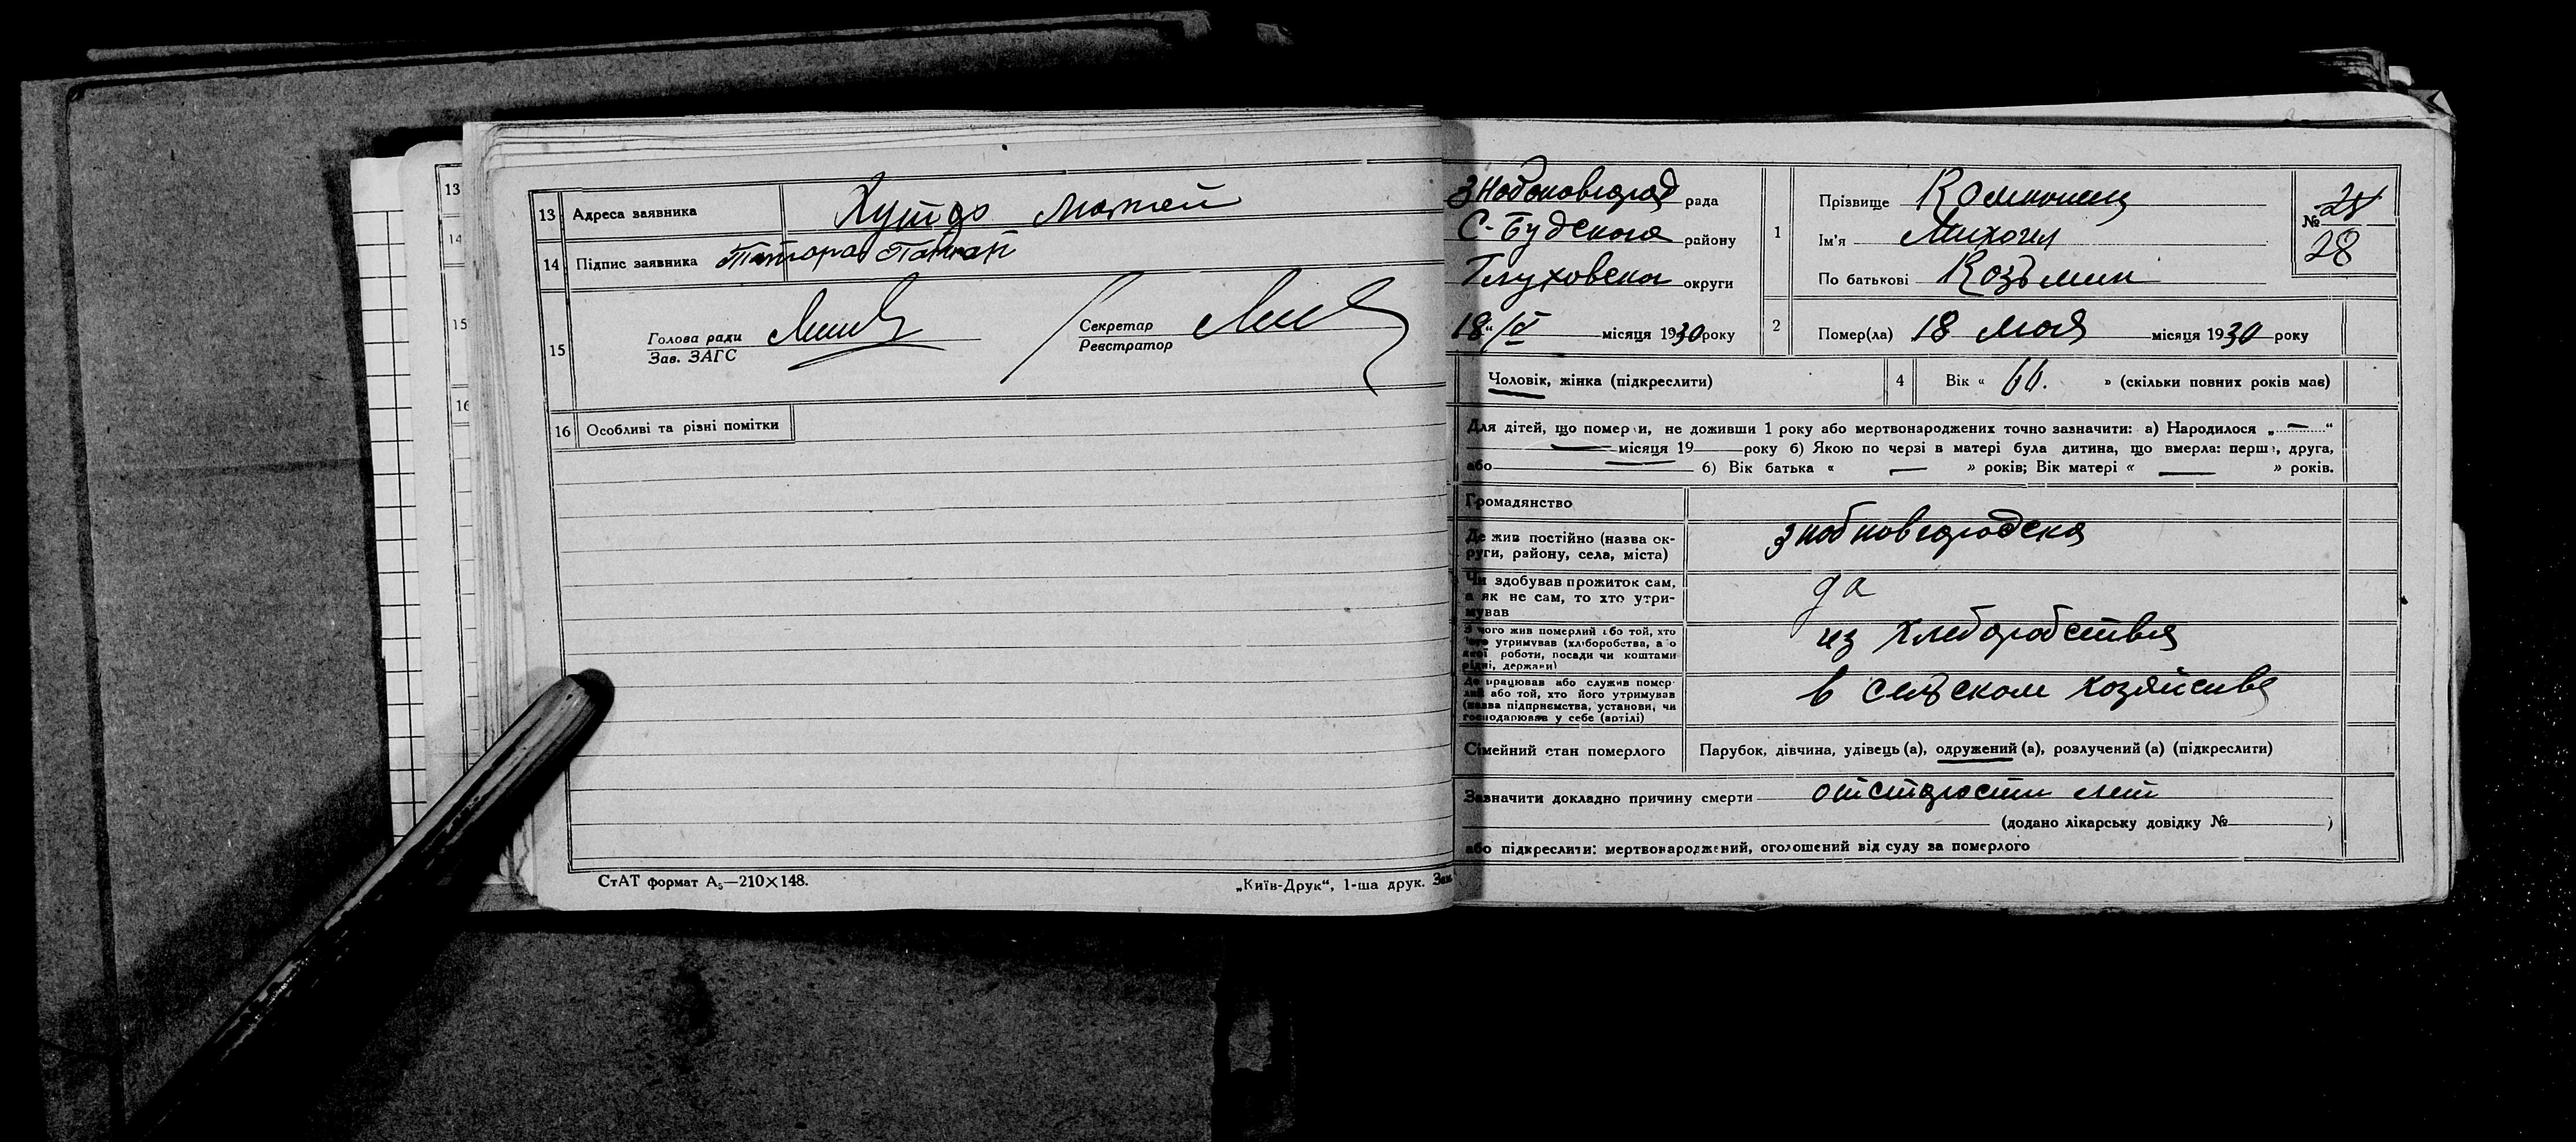 13
14
15
16
13 Адреса заявника Хутор Мотей
14 Підпис заявника
15 Голова ради
Зав. ЗАГС
Секретар
Реєстратор
16 Особливі та різні помітки
СтАТ формат А₅—210×148.
„Київ-Друк“, 1-ша друк. Зам.
рада
С-Будского району
Глуховска округи
18“/V місяця 1930 року
1 Прізвище
Ім'я Михаил
По батькові Козьмич
№ 28
28
2 Помер(ла) 18 мая місяця 1930 року
Чоловік, жінка (підкреслити)
4 Вік « 66. » (скільки повних років має)
Для дітей, що померли, не доживши 1 року або мертвонароджених точно зазначити: а) Народилося „ — “
— місяця 19 року б) Якою по черзі в матері була дитина, що вмерла: перша, друга,
або — б) Вік батька « — » років; Вік матері « — » років.
Громадянство
Де жив постійно (назва ок-
руги, району, села, міста)
знобновгородска
Чи здобував прожиток сам,
а як не сам, то хто утри-
мував
да
З чого жив померлий або той, хто
його утримував (хліборобства, а о
якої роботи, посади чи коштами
рідні, держави)
из хлеборобства
Де працював або служив помер-
лий або той, хто його утримував
(назва підприємства, установи, чи
господарював у себе (артілі)
в сельском хозяйстве
Сімейний стан померлого Парубок, дівчина, удівець (а), одружений (а), розлучений (а) (підкреслити)
Зазначити докладно причину смерти от старости лет
(додано лікарську довідку № )
або підкреслити: мертвонароджений, оголошений від суду за померлого